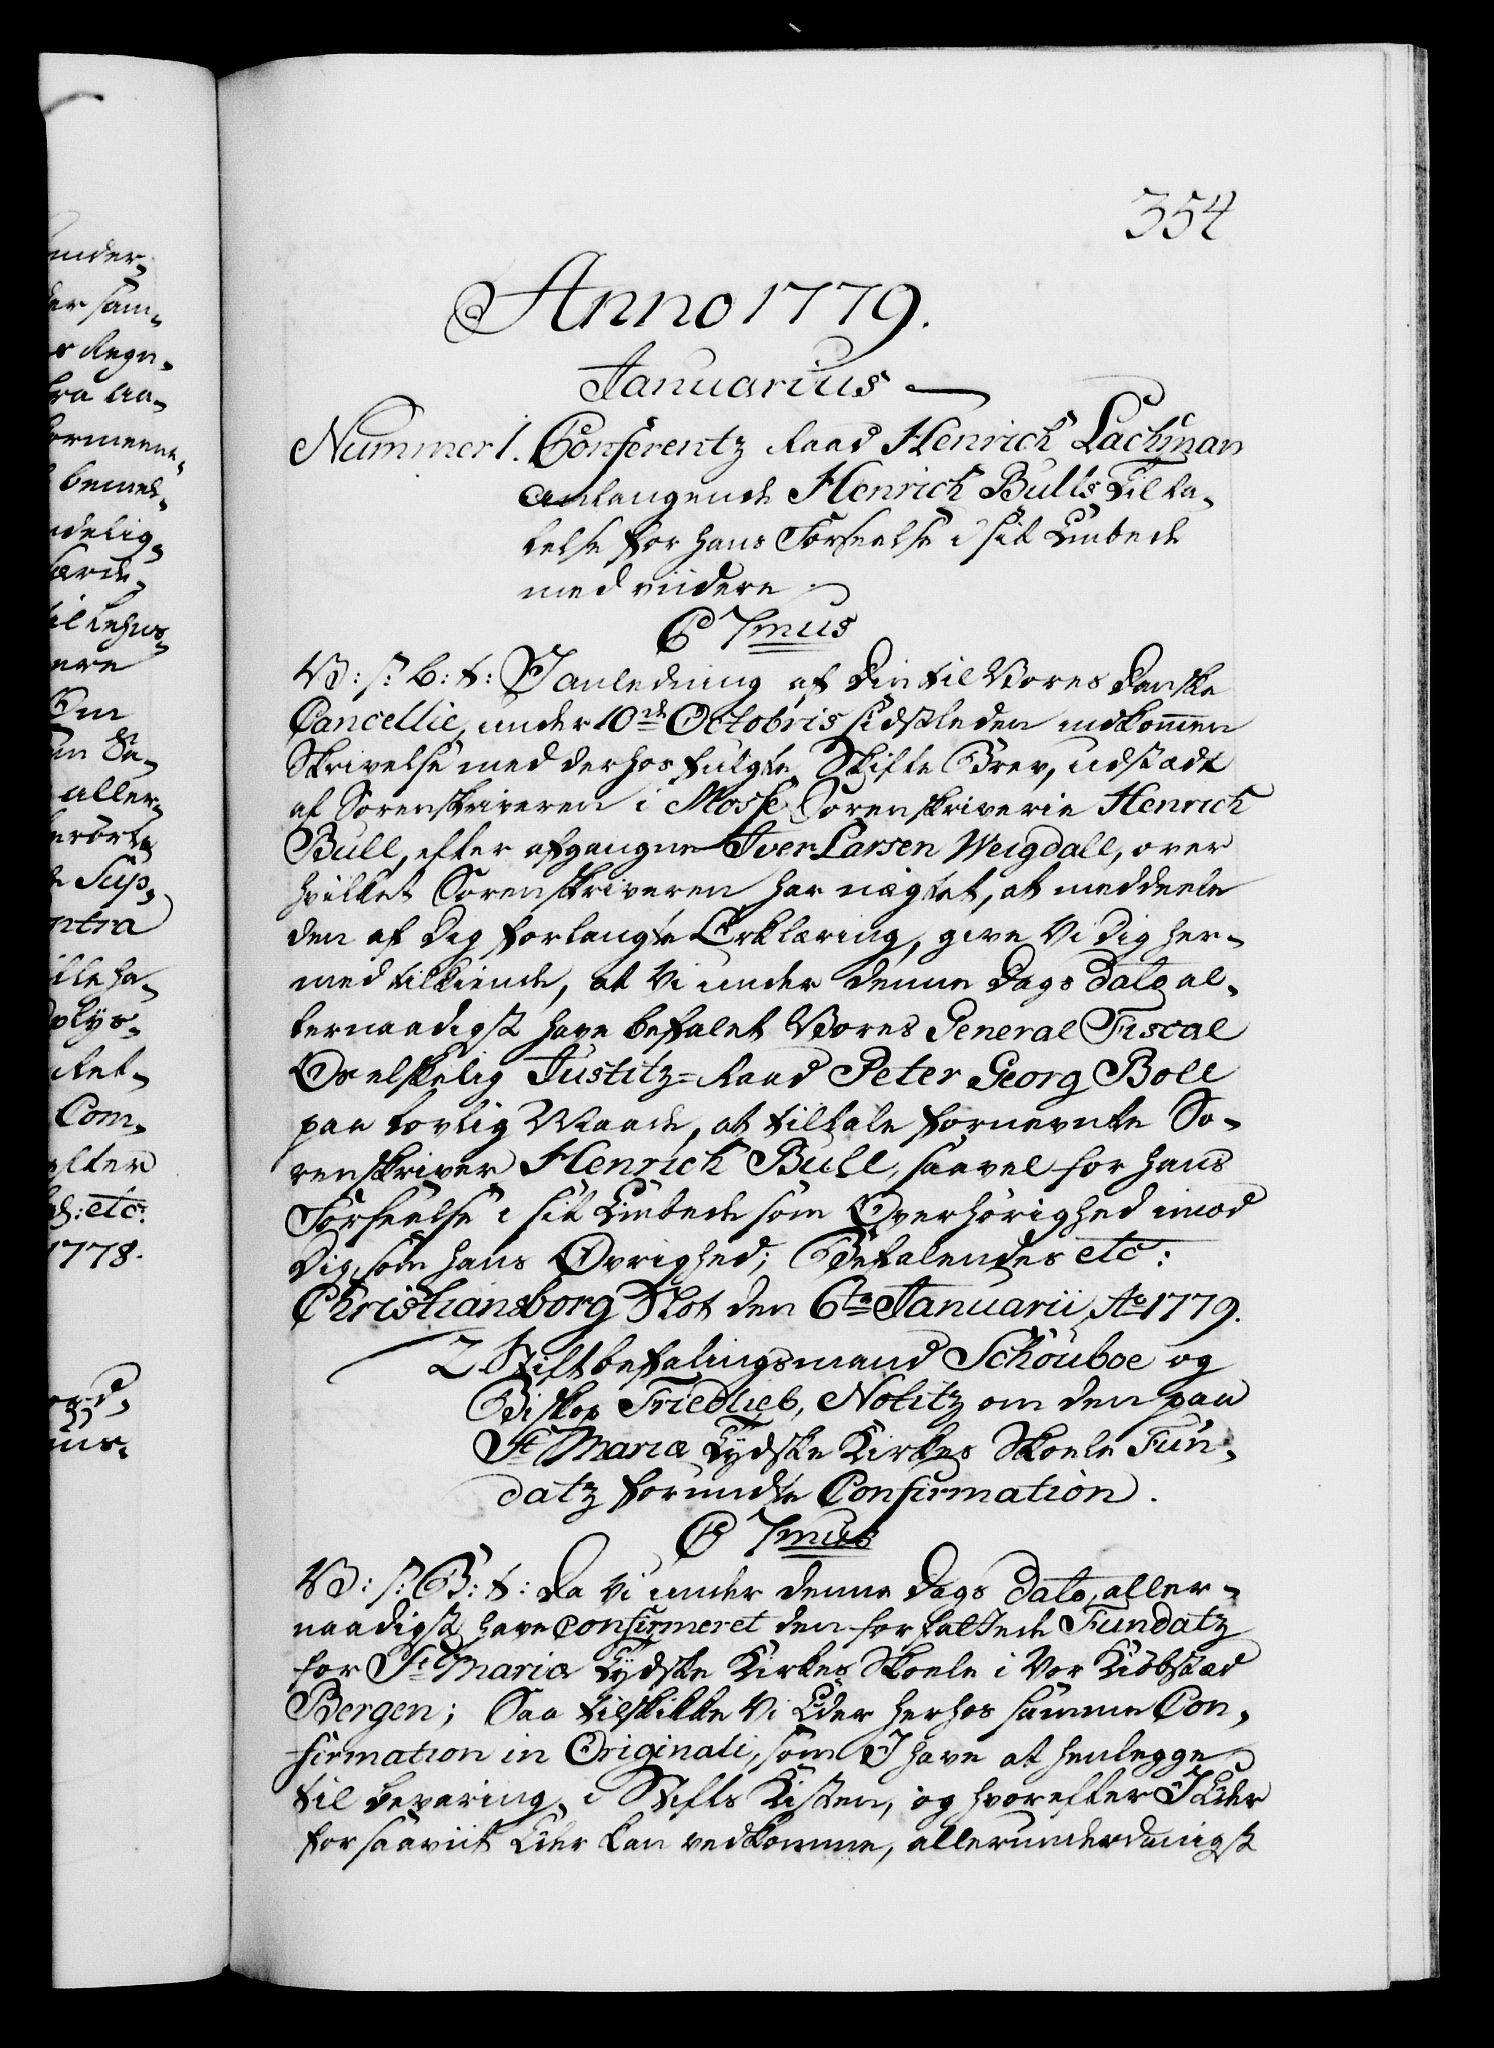 354
Anno 1779.
Januarius
Nummer 1. Conferentz Raad Henrich Lachman
anlangende Henrich Bulls Tilta-
lelse for hans Forseelse i sit Embede
med viidere
C 7mus
V: s: b: t: I anledning af Din til Vores Danske
Cancellie, under 10de Octobris sidstleden indkommen
Skrivelse med derhos fulgte Skifte Brev, udstædt
af Sorenskriveren i Mosse Sorenskriverie Henrich
Bull, efter afgangne Iver Larsen Weigdall, over
hvilket Sorenskriveren har nægtet, at meddeele
den af Dig forlangte Erklæring, give Vi Dig her-
med tilkiende, at Vi under Denne Dags Dato al-
lernaadigst have befalet Vores General Fiscal
Os elskelig Justitz=Raad Peter Georg Boll
paa lovlig Maade, at tiltale fornevnte So-
renskriver Henrich Bull, saavel for hans
Forseelse i sit Embede som Overhørighed imod
Dig, som hans Øvrighed; Befalendes etc:
Christiansborg Slot den 6te Januarii Ao 1779.
2 Stiftbefalingsmand Schouboe og
Biskop Friedlieb, Notitz om den paa
St Mariæ Tydske Kirkes Skoele Fun-
datz forundte Confirmation.
C 7mus
V: s: B: t: Da Vi under Denne Dags Dato, aller-
naadigst have Confirmeret den forfattede Fundatz
for St Mariæ Tydske Kirkes Skoele i Vor Kiøbstæd
Bergen; Saa tilskikke Vi Eder herhos samme Con-
firmation in Originali, som I have at henlegge
til bevaring i Stifts Kisten, og hvorefter I Eder
forsaavit Eder kan vedkomme, allerunderdanigst